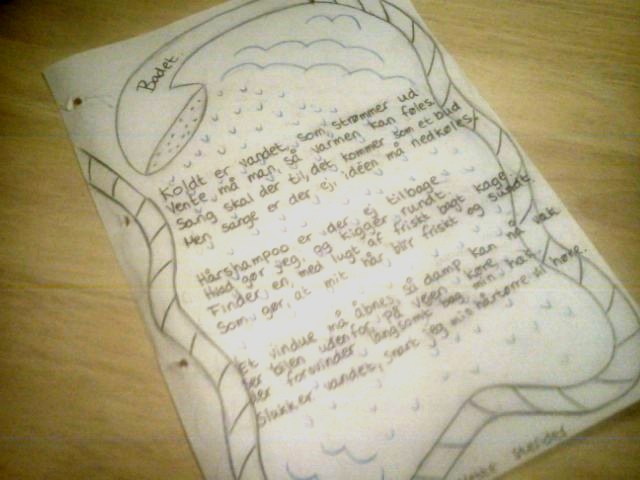 Badet
Koldt er vandet, som strømmer ud
Vente må man, så varmen kan føles.
Sang skal der til, det kommer som et bud
Men sange er der ej, idéen må nedkøles.
Hårshampoo er der ej tilbage
Hvad gør jeg, og kigger rundt.
Finder en, med lugt af friskt bagt kage
Som gør, at mit hår blir friskt og sundt.
Et vindue må åbnes, så damp kan gå væk
Ser bilen udenfor på vejen køre
der forsvinder langsomt bag min hæk
Slukker vandet, snart jeg min hårtørre vil høre.